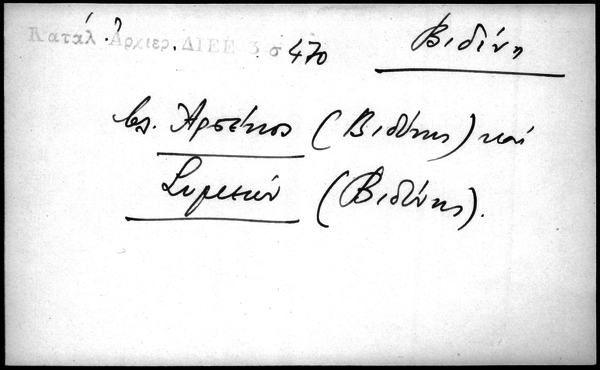 Κατάλ Ἀρχιερ. ΔΙΕΕ 3 σ 470 Βιδίνη
βλ. Ἀρσένιος (Βιδύνης) καὶ
Συμεὼν (Βιδύνης).